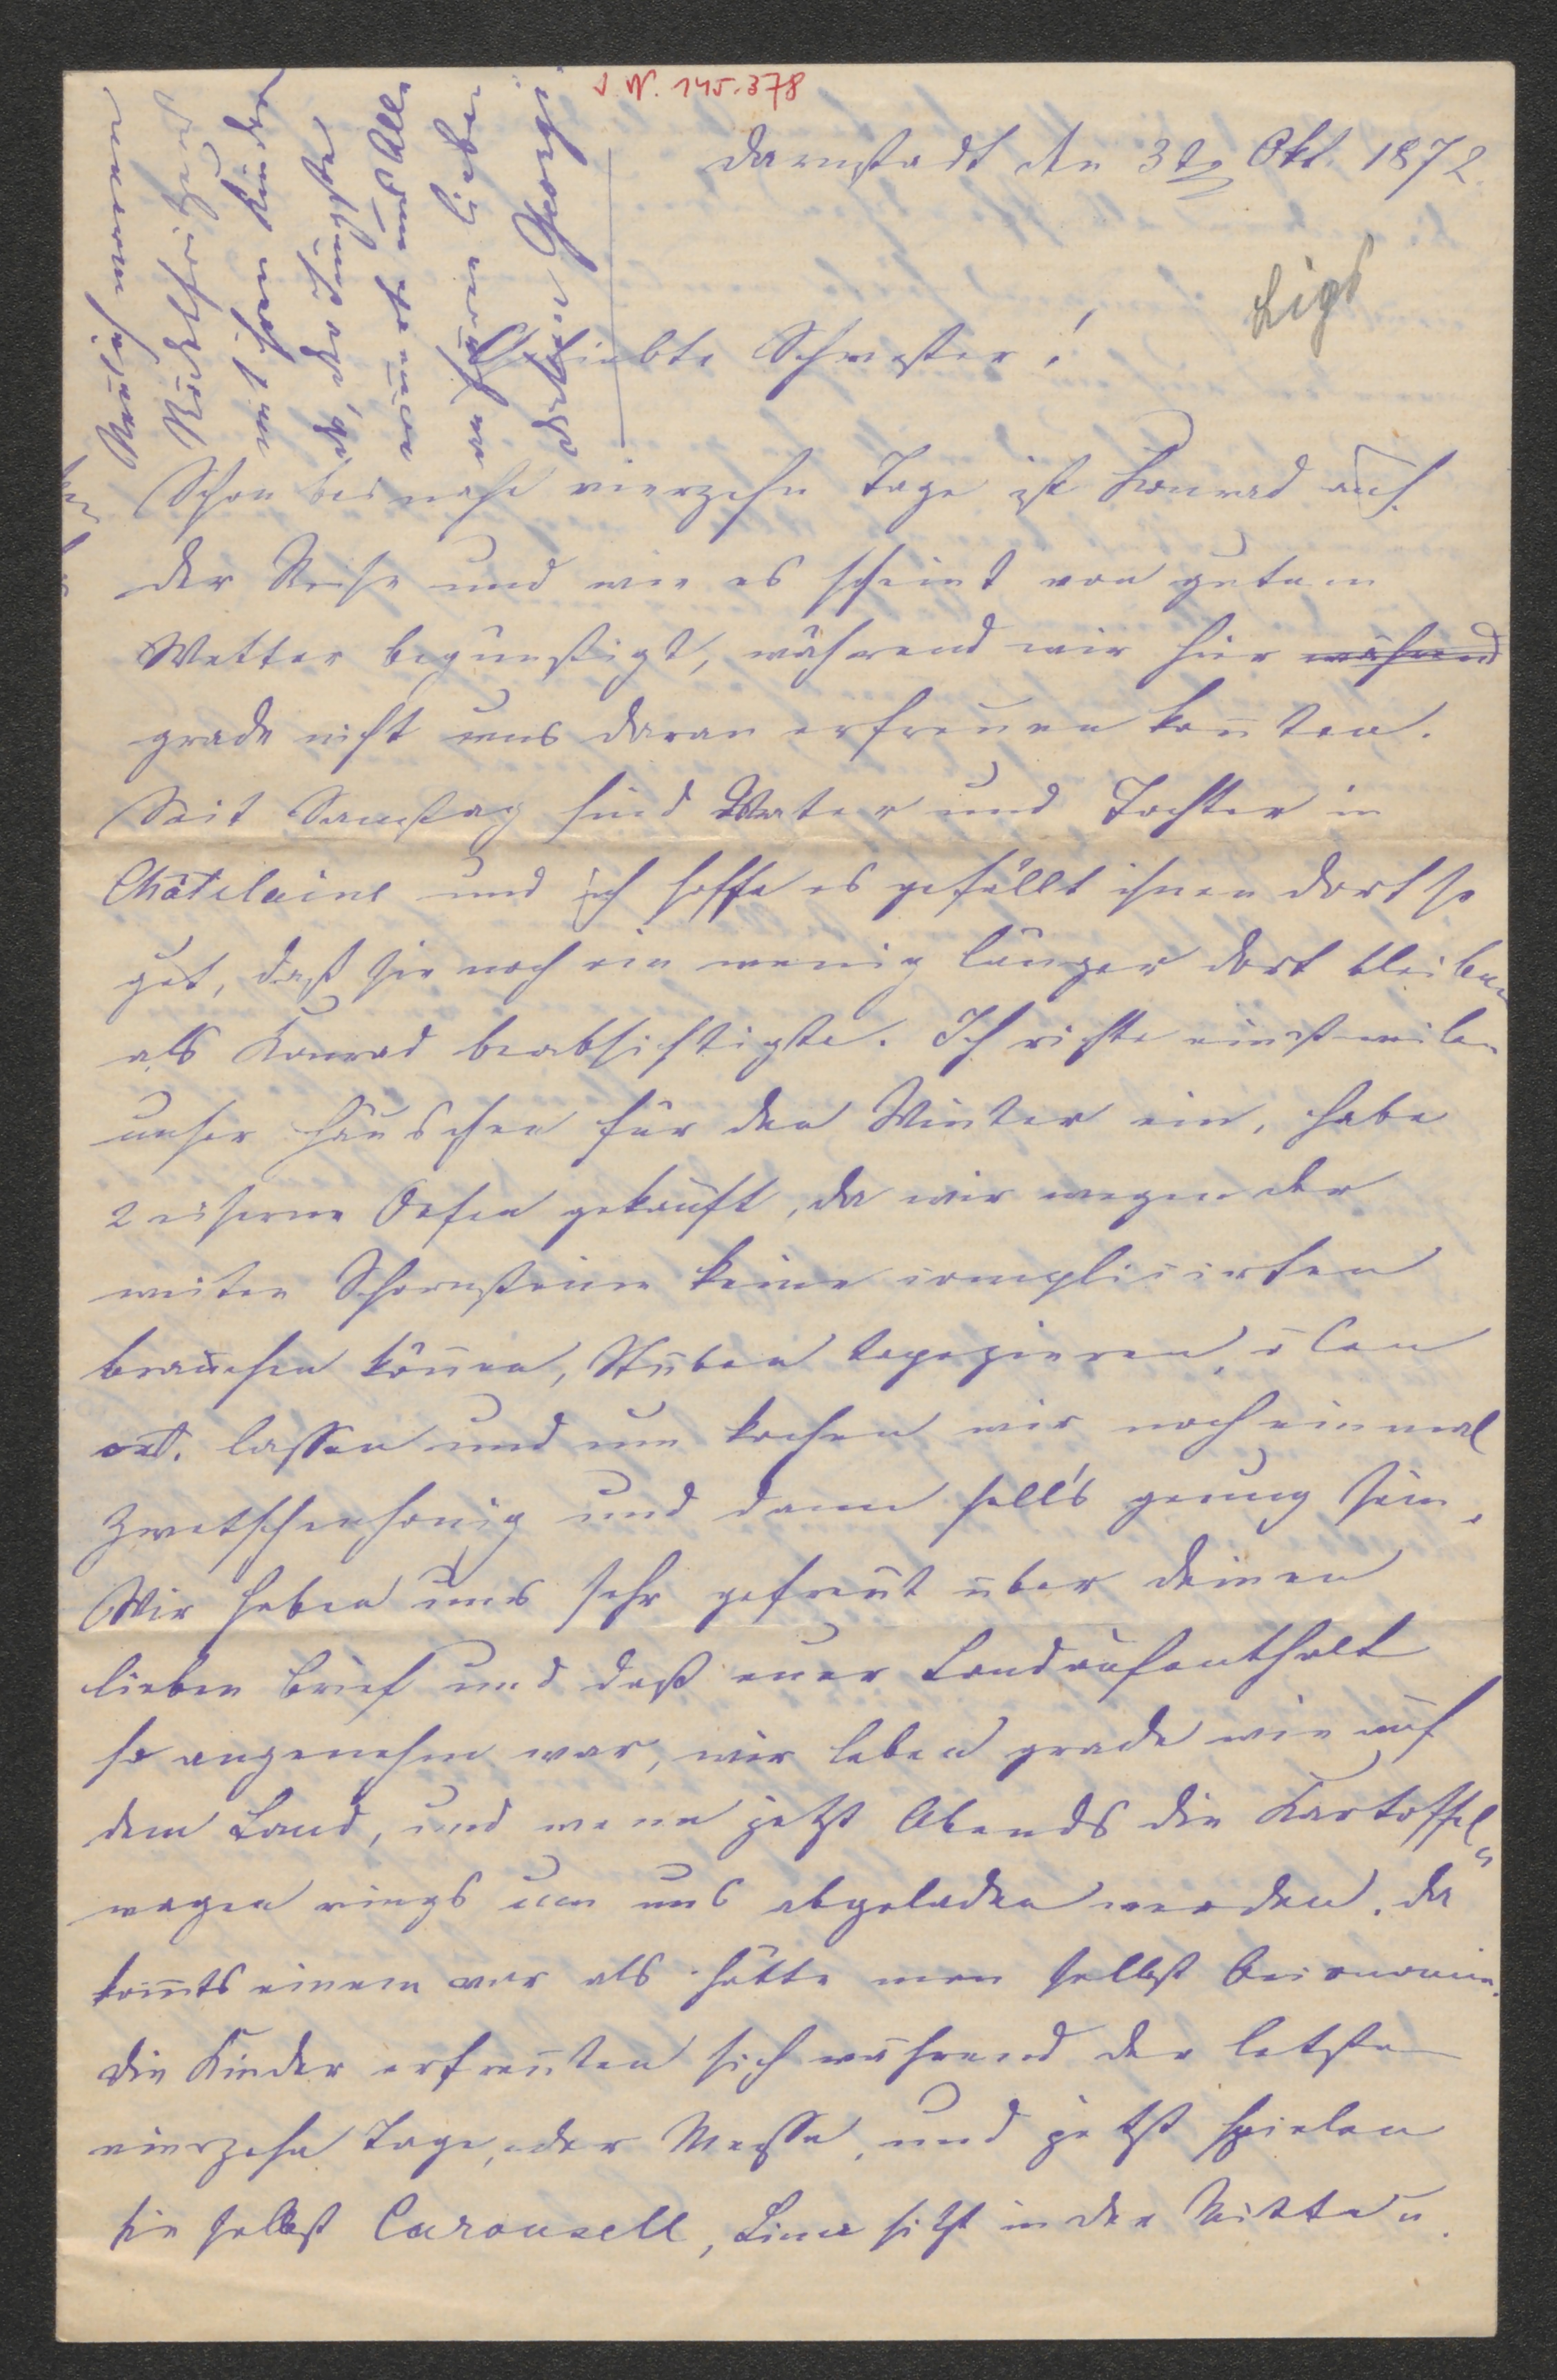 J. N. 145.378
Darmstadt den 3t. Okt. 1872.
Ligs
Geliebte Schwester!
Schon beinahe vierzehn Tage ist Konrad auf
der Reise und wie es scheint von gutem
Wetter begünstigt, während wir hier während
grade nicht uns daran erfreuen konnten.
Seit Samstag sind Vater und Tochter in
Châtelaine und ich hoffe es gefällt ihnen dort so
gut, daß sie noch ein wenig länger dort bleiben
als Konrad beabsichtigte. Ich richte einstweilen
unser Häuschen für den Winter ein, habe
2 eiserne Oefen gekauft, da wir wegen der
weiten Schornsteine keine complicirten
brauchen können, Stuben tapezieren, ölen
ect. lassen und nun kochen wir noch einmal
Zwetschenhonig und dann soll's genug sein.
Wir haben uns sehr gefreut über deinen
lieben Brief und daß euer Landaufenthalt
so angenehm war, wir leben grade wie auf
dem Land, und wenn jetzt Abends die Kartoffel
wagen rings um uns abgeladen werden, da
kommts einem vor als hätte man selbst
die Kinder erfreuten sich während der letzten
vierzehn Tage, der Messe, und jetzt spielen
sie selbst Carousell, Lina sitzt in der Mitte u.
mit ihren Kinder
die Jüngste
eure und Alle
von ihren lieben
dicken Georgi